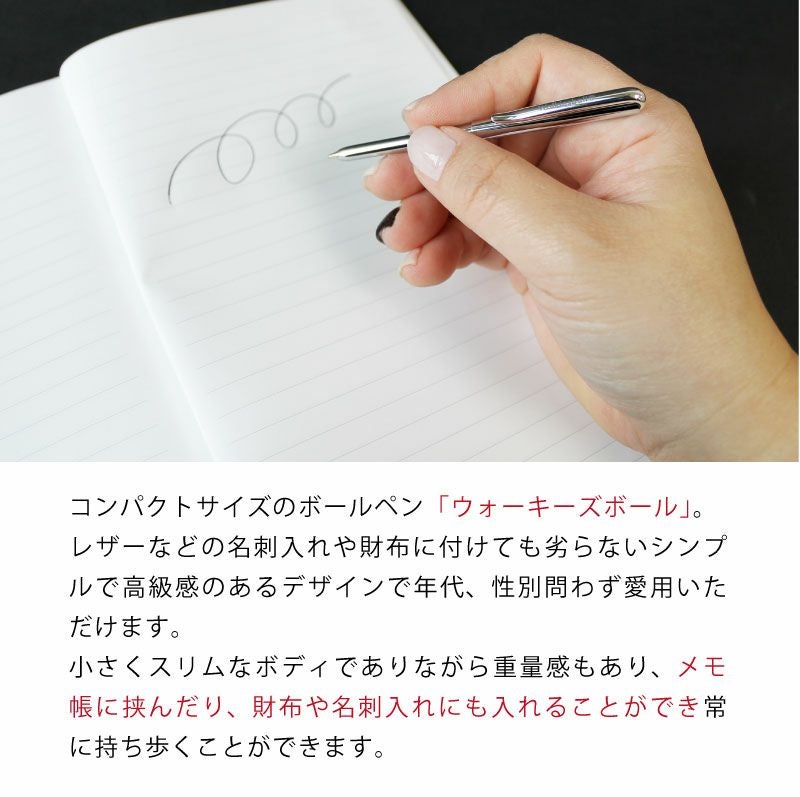 コンパクトサイズのボールペン「ウォーキーズボール」。
レザーなどの名刺入れや財布に付けても劣らないシンプ
ルで高級感のあるデザインで年代、性別問わず愛用いた
だけます。
小さくスリムなボディでありながら重量感もあり、メモ
帳に挟んだり、財布や名刺入れにも入れることができ常
に持ち歩くことができます。